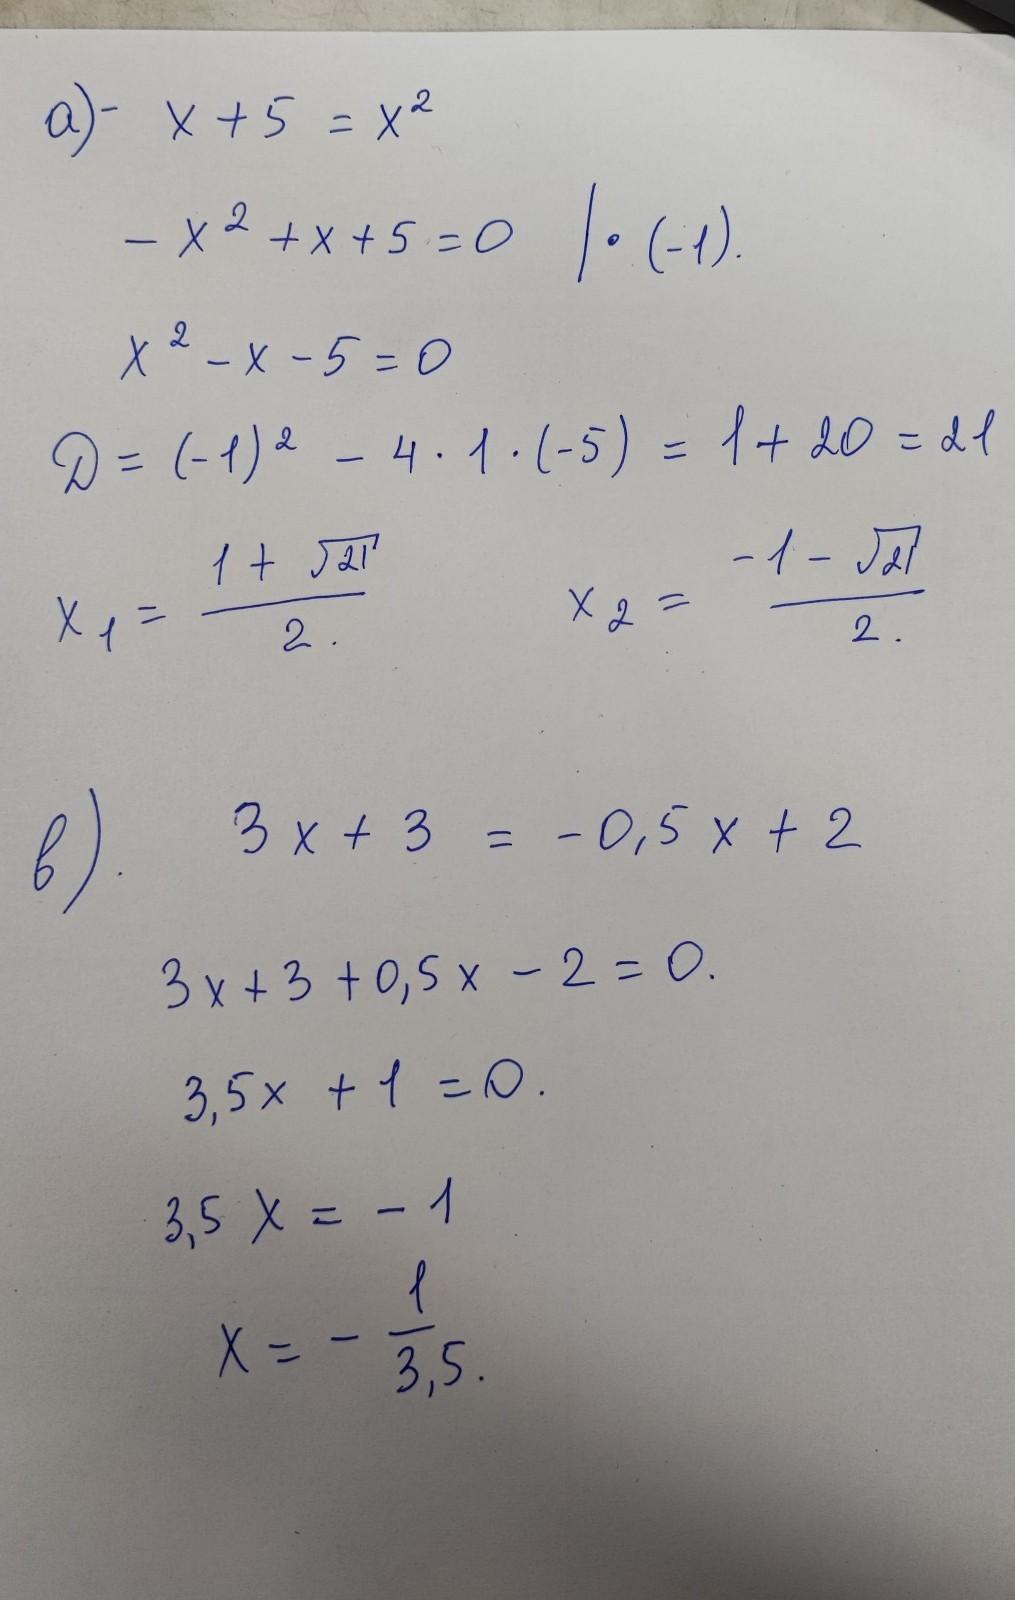 а)- x + 5 = x²
- x² + x + 5 = 0 | · (-1).
x² - x - 5 = 0
D = (-1)² - 4 · 1 · (-5) = 1 + 20 = 21
x₁ = (1 + √21)/2. x₂ = (-1 - √21)/2.
в). 3x + 3 = -0,5x + 2
3x + 3 + 0,5x - 2 = 0.
3,5x + 1 = 0.
3,5 x = - 1
x = - 1/3,5.